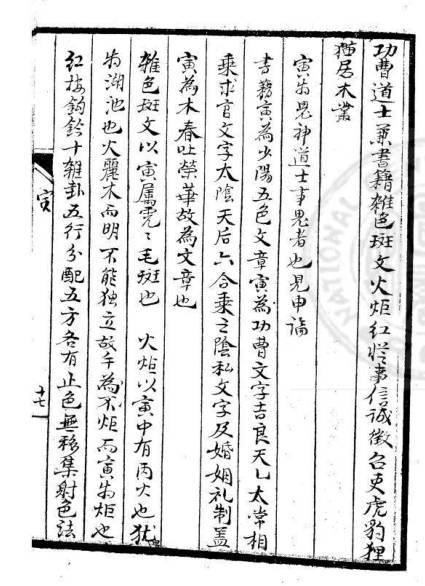 功曹道士兼書籍雜色斑文火炬紅巾事信誠徵召吏虎豹狸
猫居木叢
寅為鬼神道士事鬼者也見申論
書籍寅為少陽五色文章寅為功曹文字吉良天乙太常相
乘求官文字太陰天后六合乘之陰私文字及婚姻礼制蓋
寅為木春吐榮華故為文章也
雜色斑文以寅屬虎〻毛斑也 火炬以寅中有丙火也猶
為湖池也火麗木而明不能独立故手為不炬而寅為炬也
紅梅鈎鈐十雜卦五行分配五方各有止色無移集射色法
寅
十七